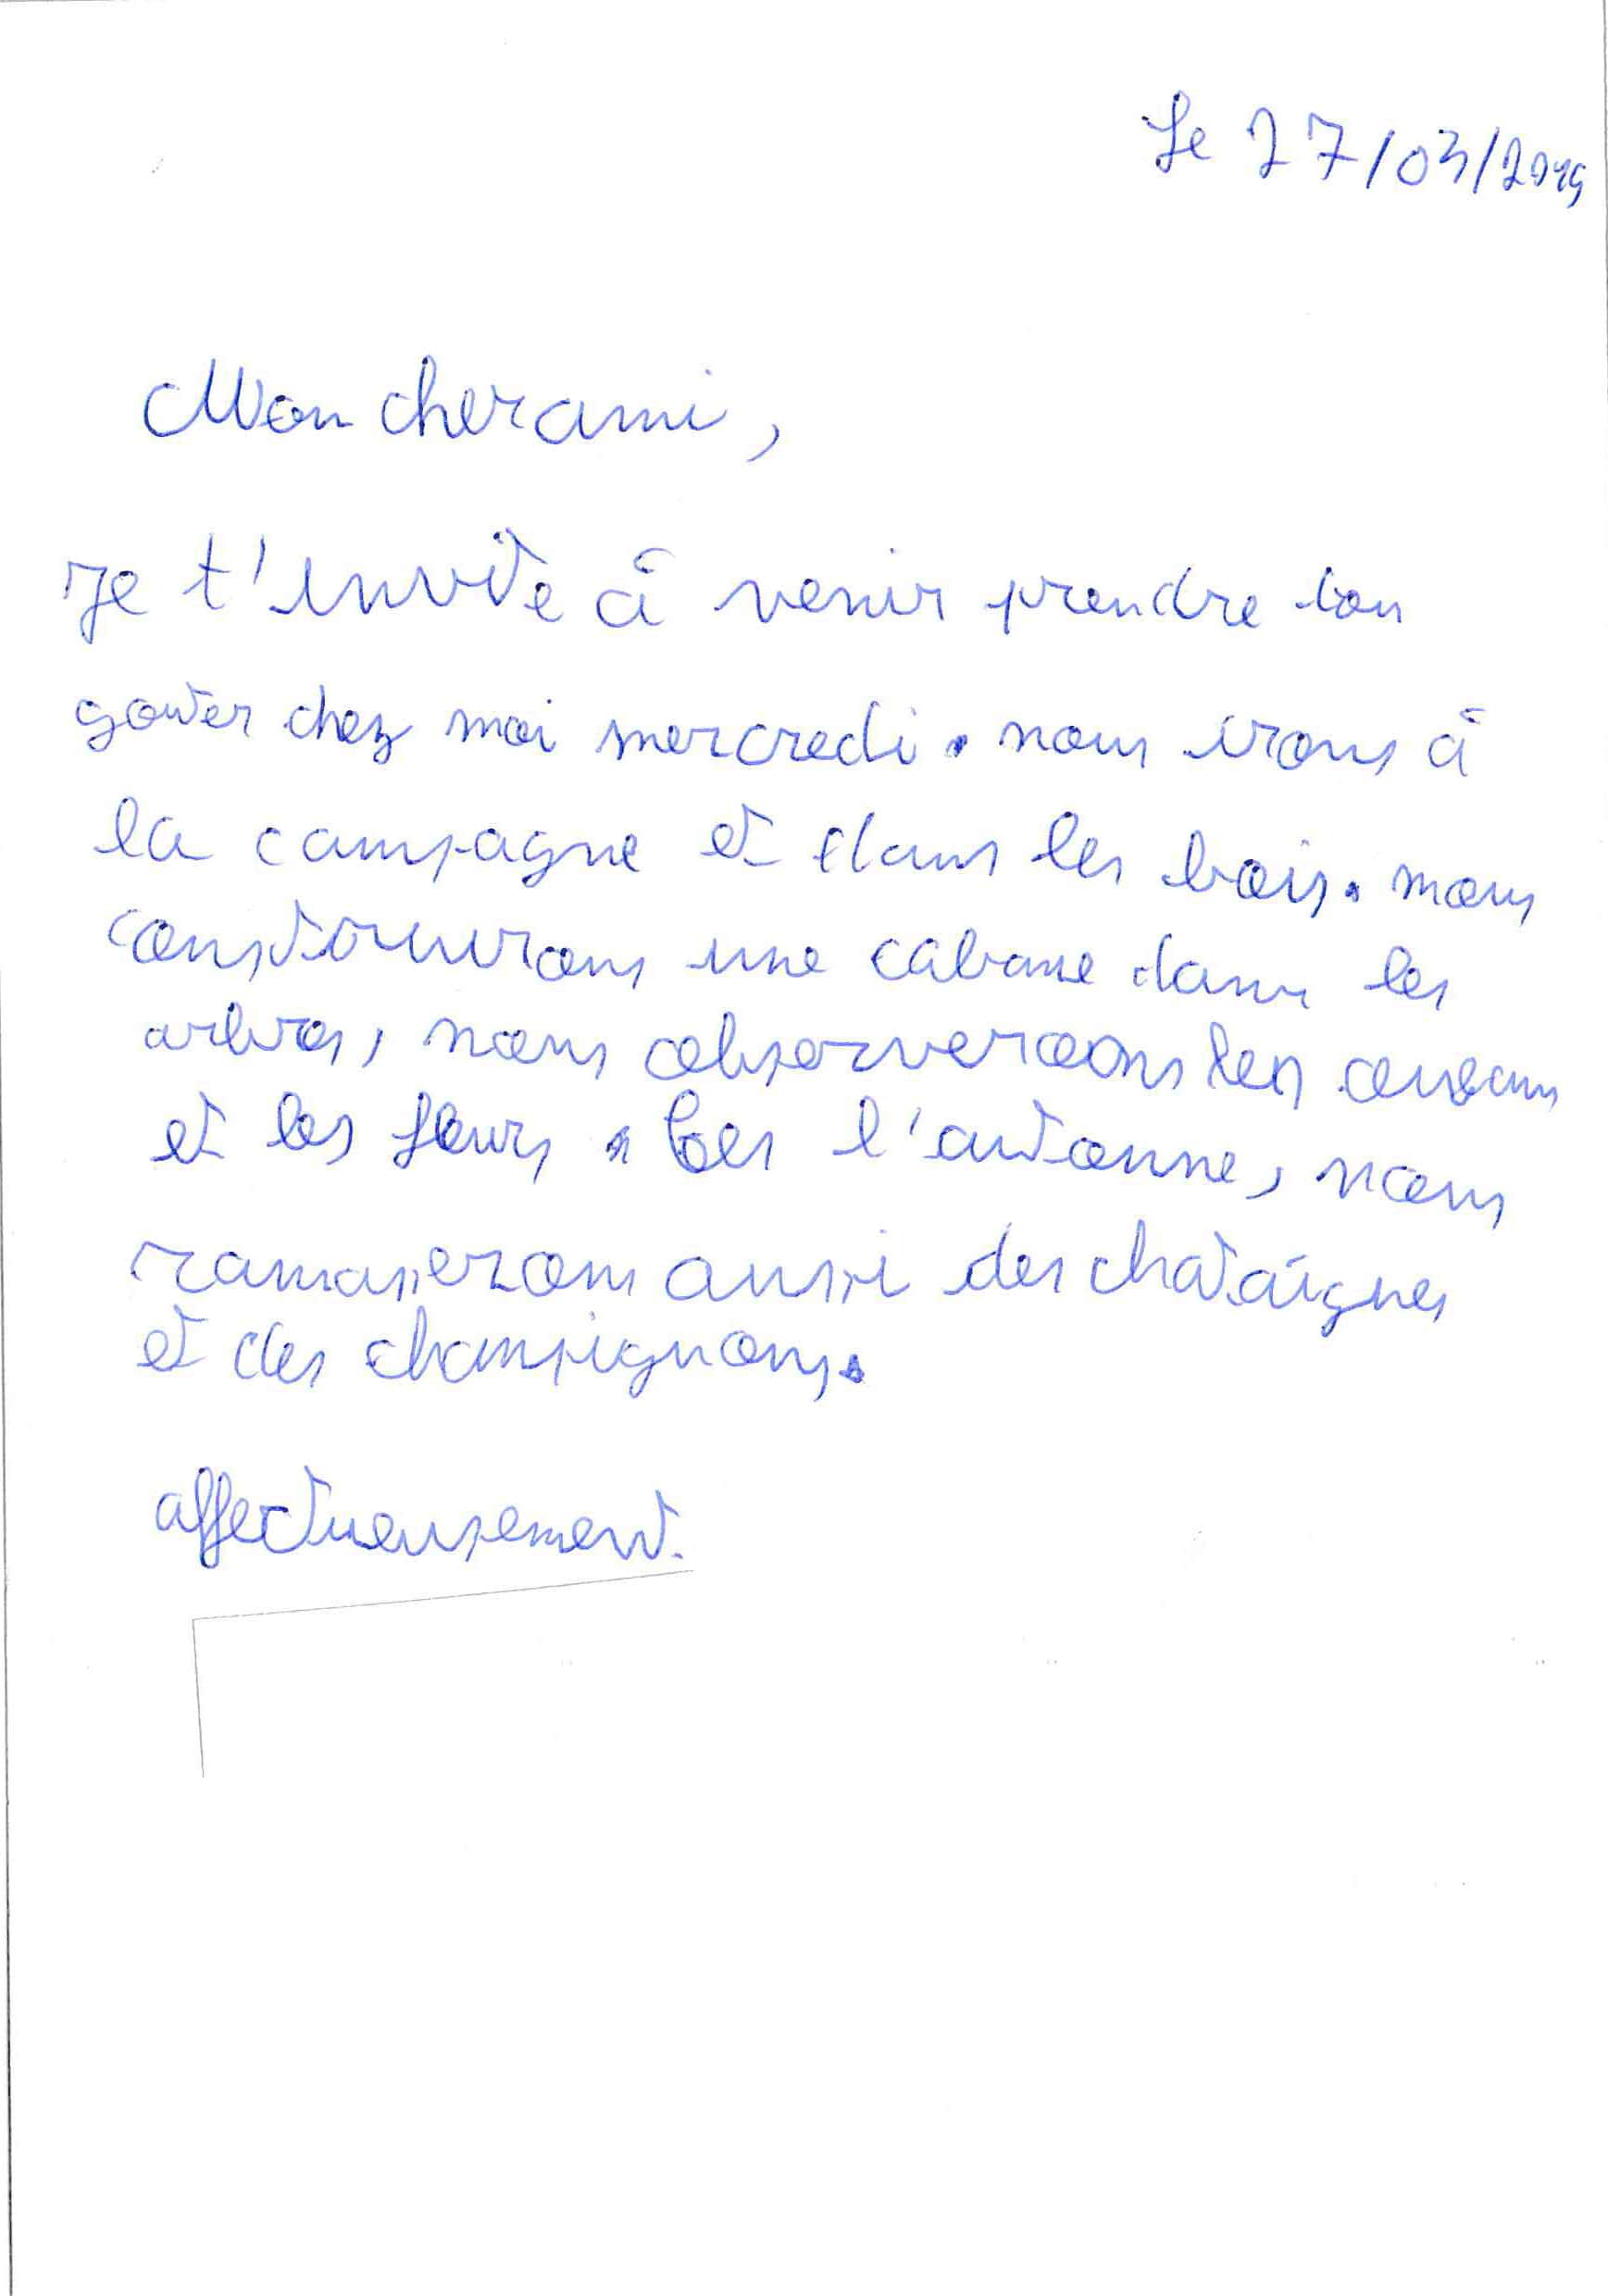 Le 27/03/2019
Mon cher ami,
Je t'invite à venir prendre ton
gouter chez moi mercredi. nous irons à
la campagne et dans les bois. nous
construirons une cabane dans les
arbres, nous observerons les oiseaux
et les fleurs. C'est l'automne, nous
ramasserons aussi des chataignes
et des champignons.
affectueusement.